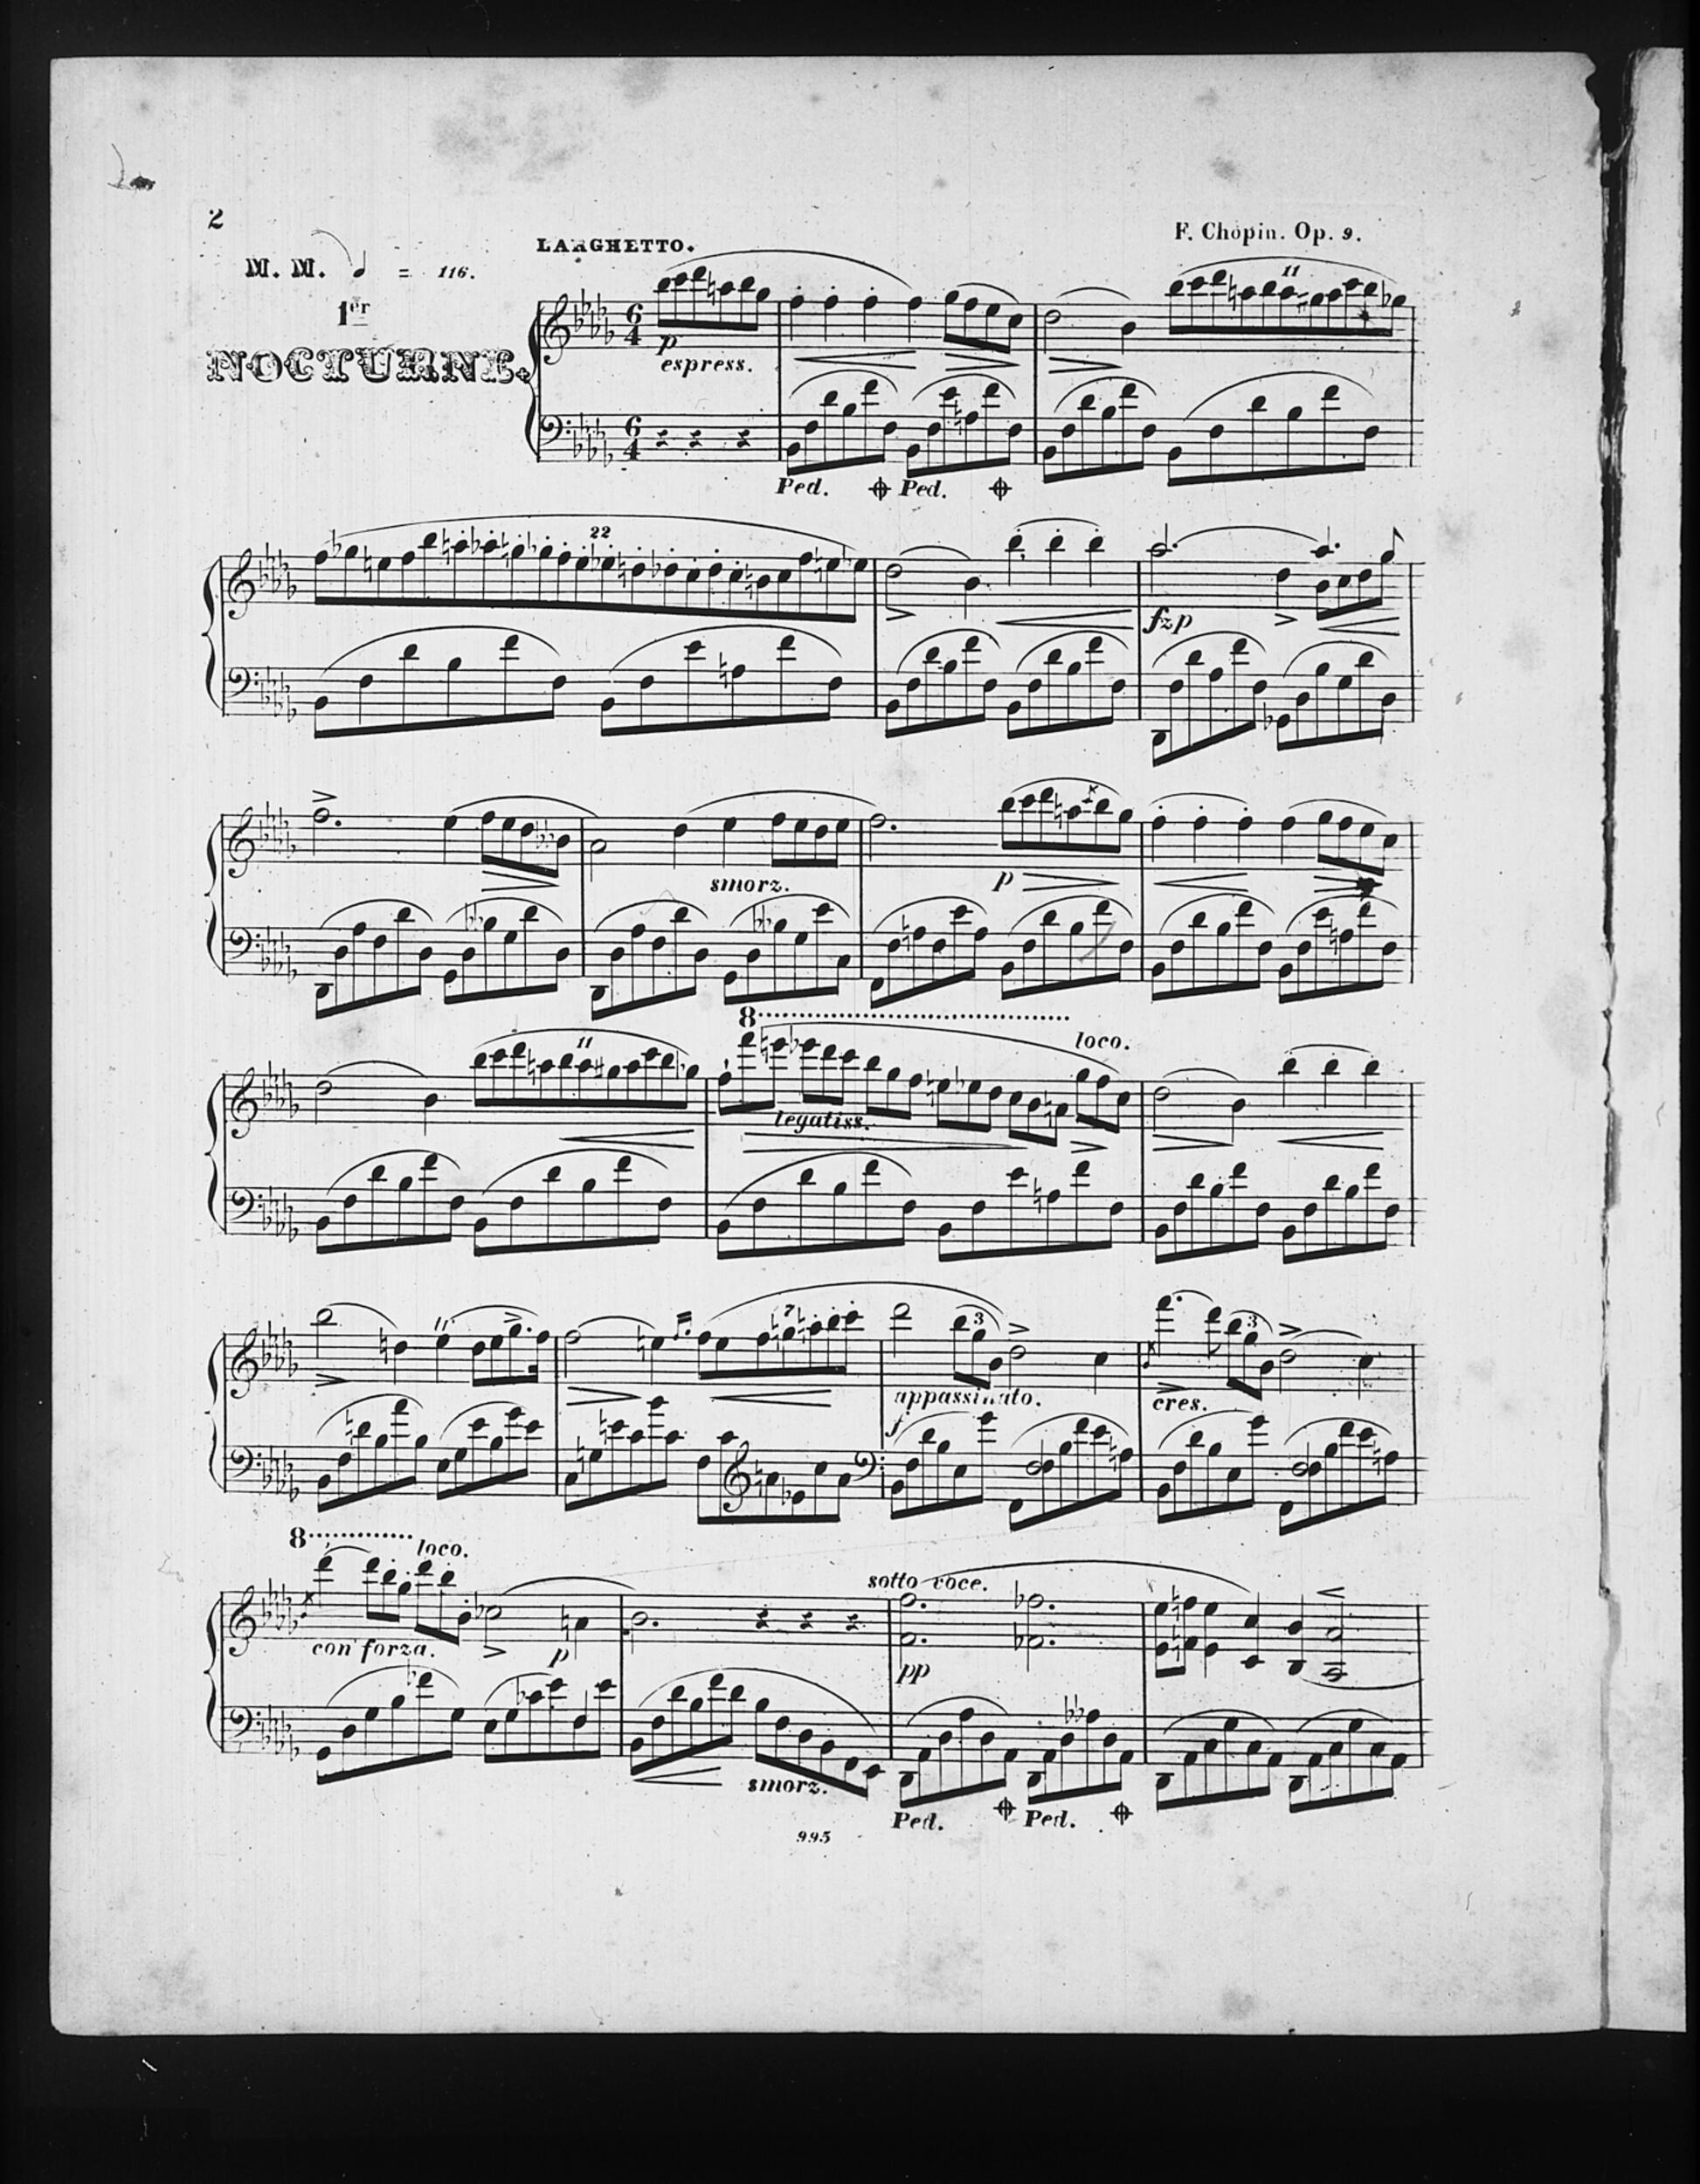 2
LARGHETTO.
F. Chopin. Op. 9.
M. M. = 116.
1er
NOCTURNE.
11
6
4
p
espress.
6
4
Ped. Ped.
22
fzp
smorz.
p
8
11
loco.
legatiss.
7
3
3
appassinato.
cres.
f
8
loco.
sotto voce.
con forza.
p
pp
smorz.
Ped. Ped.
995